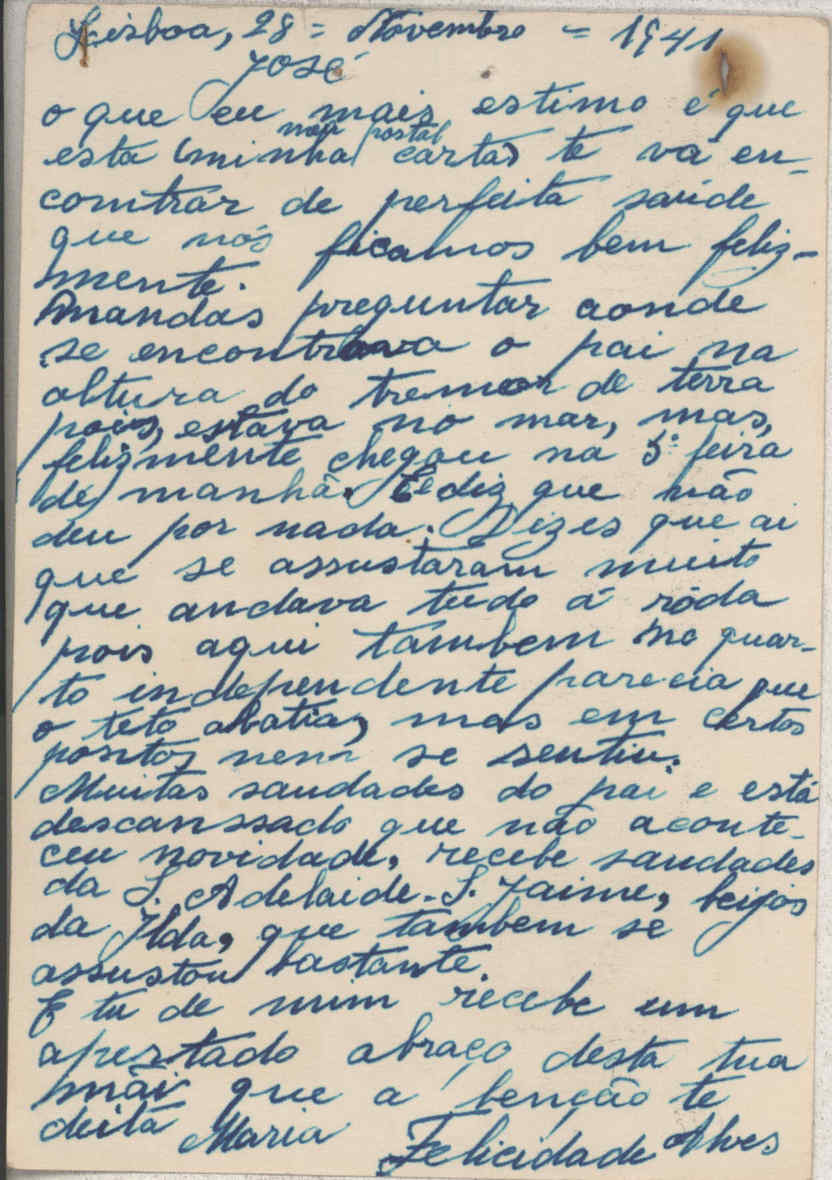 Lisboa, 28 = Novembro = 1941
José
o que eu mais estimo é que
meu postal
esta (minha carta) te vá en-
comtrar de perfeita saúde
que nós ficamos bem feliz-
mente.
Mandas preguntar aonde
se encontrava o pai na
altura do tremor de terra
pois, estava no mar, mas,
felizmente chegou na 5ª feira
de manhã. Ele diz que não
deu por nada. Dizes que ai
que se assustaram muito
que andava tudo á róda
pois aqui tambem no quar-
to independente parecia que
o této abatia, mas em certos
pontos nem se sentiu.
Muitas saudades do pai e está
descanssado que não aconte-
ceu novidade, recebe saudades
da S. Adelaide. S. Jaime, beijos
da Ilda, que tambem se
assustou bastante.
E tu de mim recebe um
apertado abraço desta tua
mãi que a benção te
deita Maria Felicidade Alves